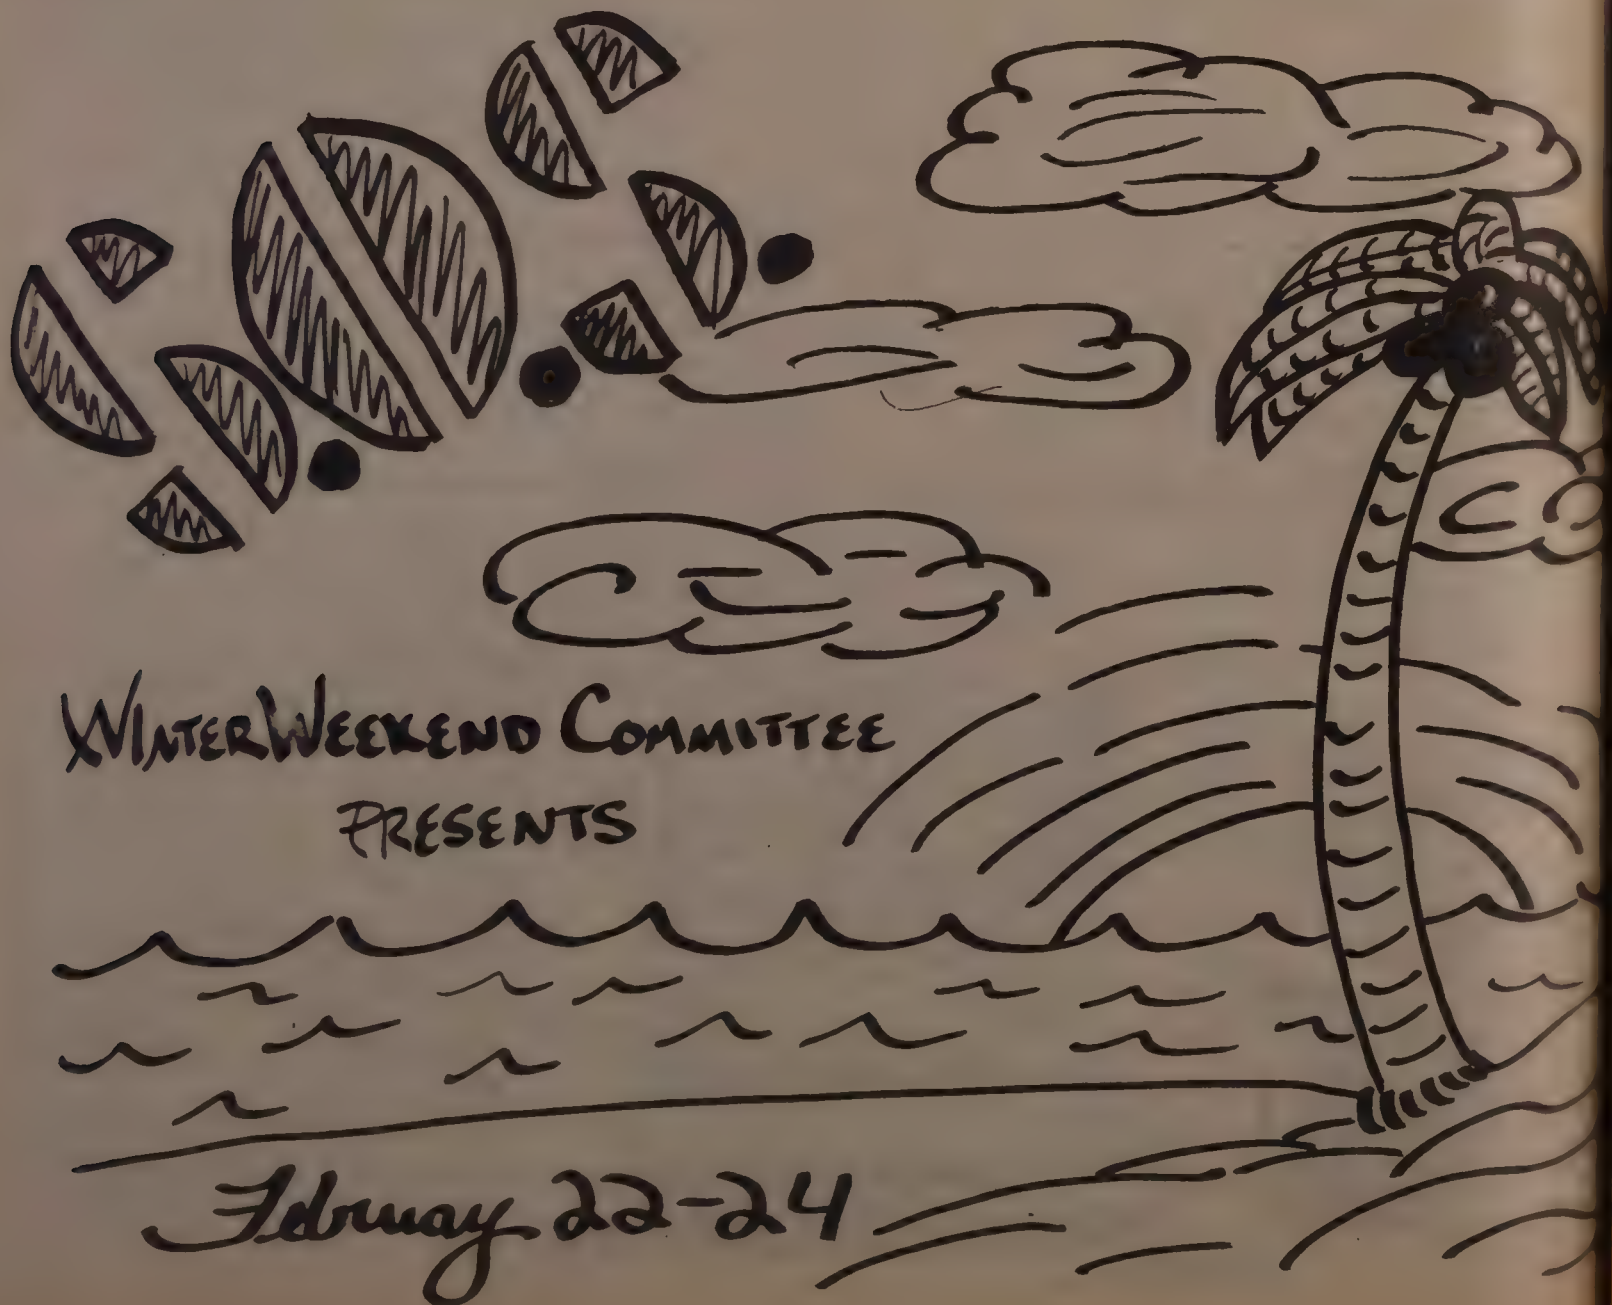 S.O.S.
WINTER WEEKEND COMMITTEE
PRESENTS
Februay 22-24